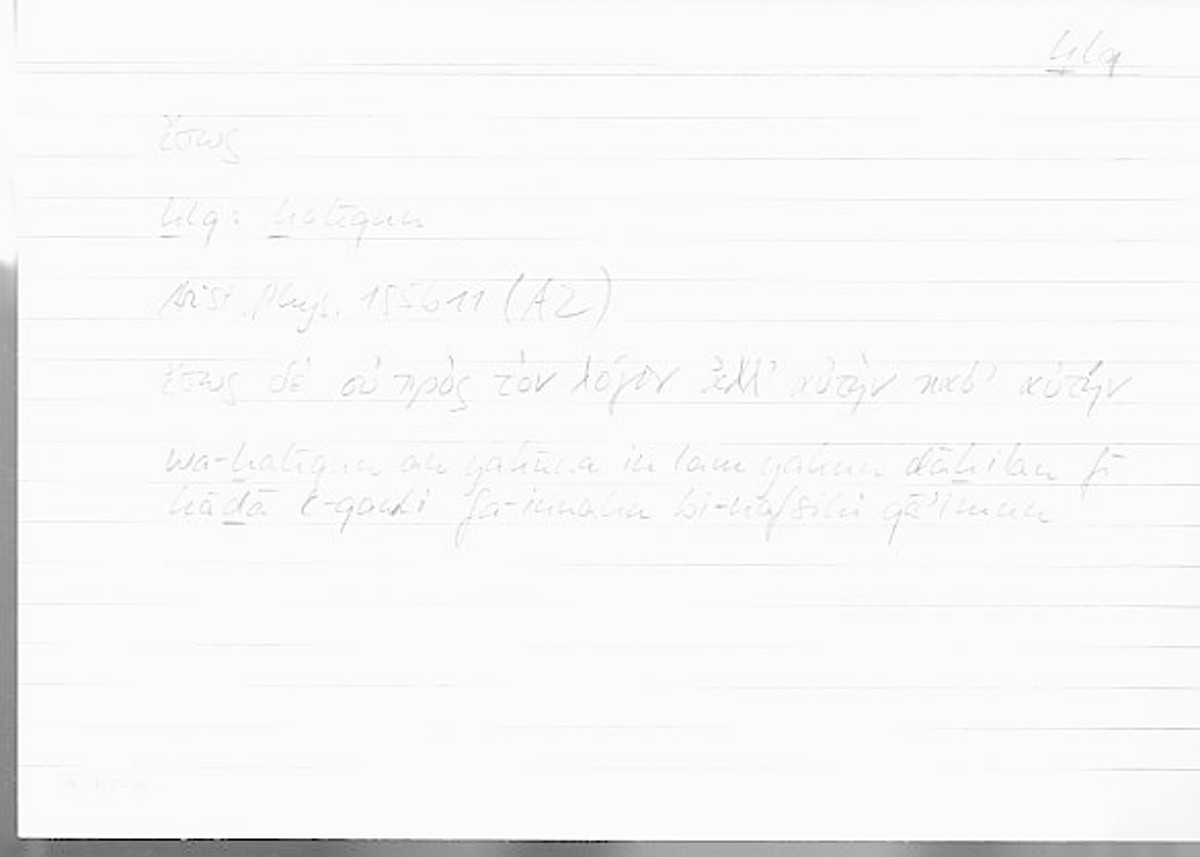 ḫlq
ἴσως
ḫlq: ḫalīqun
Arist. Phys. 185b11 (A2)
ἴσως δὲ οὐ πρὸς τὸν λόγον ἀλλ' αὐτὴν καθ' αὑτήν
wa-ḫalīqun an yakūna in lam yakun dāḫilan fī
hāḏā l-qauli fa-innahu bi-nafsihi qā'imun